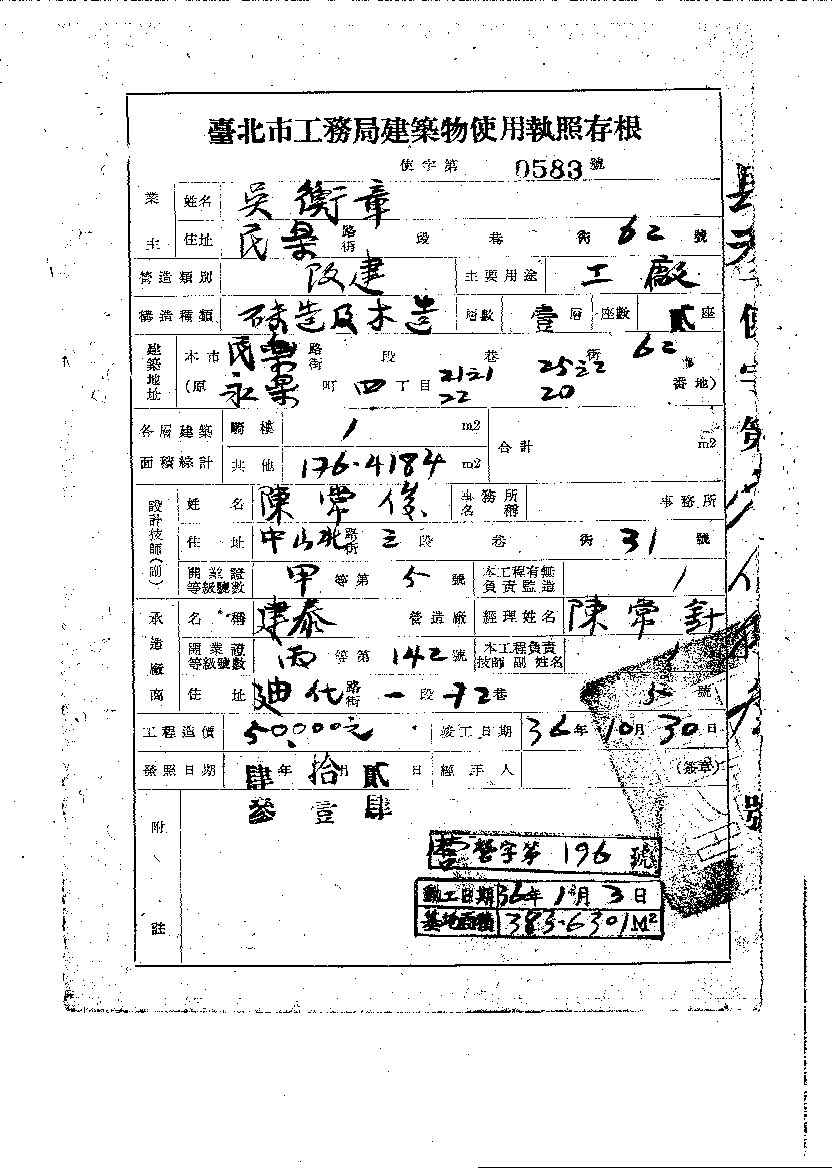 臺北市工務局建築物使用執照存根
使字第 0583 號
業主 姓名 吳衡章
住址 民樂 路街 段 巷 街 62 號
營造類別 改建 主要用途 工廠
構造種類 磚造及木造 層數 壹 層 座數 貳 座
建築地址 本市 民樂 路街 段 巷 街 62 號
(原 永樂 町 四 丁目 21之1 25之2 番地)
22 20
各層建築面積綜計 騎樓 / m2 合計 m2
其他 176.4184 m2
設計技師(副) 姓名 陳常俊 事務所名稱 事務所
住址 中山北 路街 三 段 巷 街 31 號
開業證等級號數 甲 等第 5 號 本工程有無負責監造 /
承造廠商 名稱 建泰 營造廠 經理姓名 陳常針
開業證等級號數 丙 等第 142 號 本工程負責技師副姓名 /
住址 迪化 路街 一 段 72 巷 5 號
工程造價 50,000元 竣工日期 36年10月30日
發照日期 肆 年 拾 月 貳 日 經手人 (簽章)
參 壹 肆
附註
營營字第 196 號
動工日期 36年1月3日
基地面積 383.6301M²